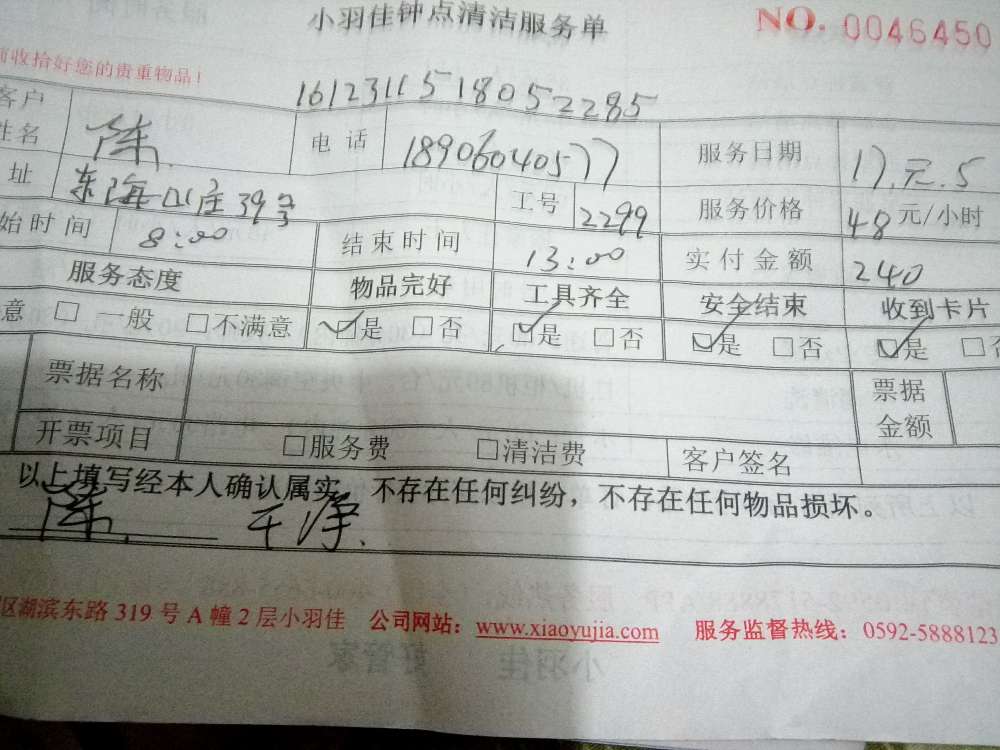 小羽佳钟点清洁服务单 NO. 0046450
收拾好您的贵重物品！
161231151805２285
客户姓名 陈 电话 18906040577 服务日期 17.元.5
址 东海山庄39号 工号 2299 服务价格 48元/小时
始时间 8:00 结束时间 13:00 实付金额 240
服务态度 物品完好 工具齐全 安全结束 收到卡片
意 □ 一般 □不满意 ☑是 □否 ☑是 □否 ☑是 □否 ☑是 □否
票据名称 票据金额
开票项目 □服务费 □清洁费 客户签名
以上填写经本人确认属实，不存在任何纠纷，不存在任何物品损坏。
陈 干净.
区湖滨东路 319 号 A 幢 2 层小羽佳 公司网站：www.xiaoyujia.com 服务监督热线：0592-5888123
小羽佳 好管家